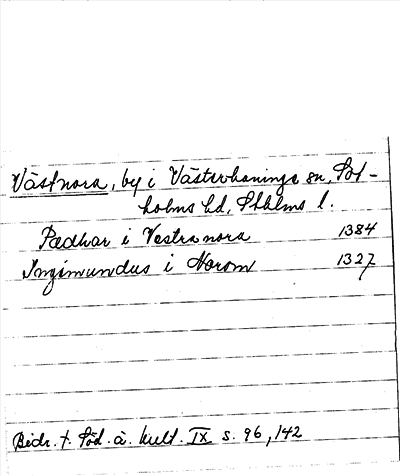 Västnora, by i Västerhaninge sn, Sot-
holms hd, Sthlms l.
Pædhar i Vestranora 1384
Ingimundus i Norom 1327
Bidr. t. Söd. ä. kult. IX s. 96, 142